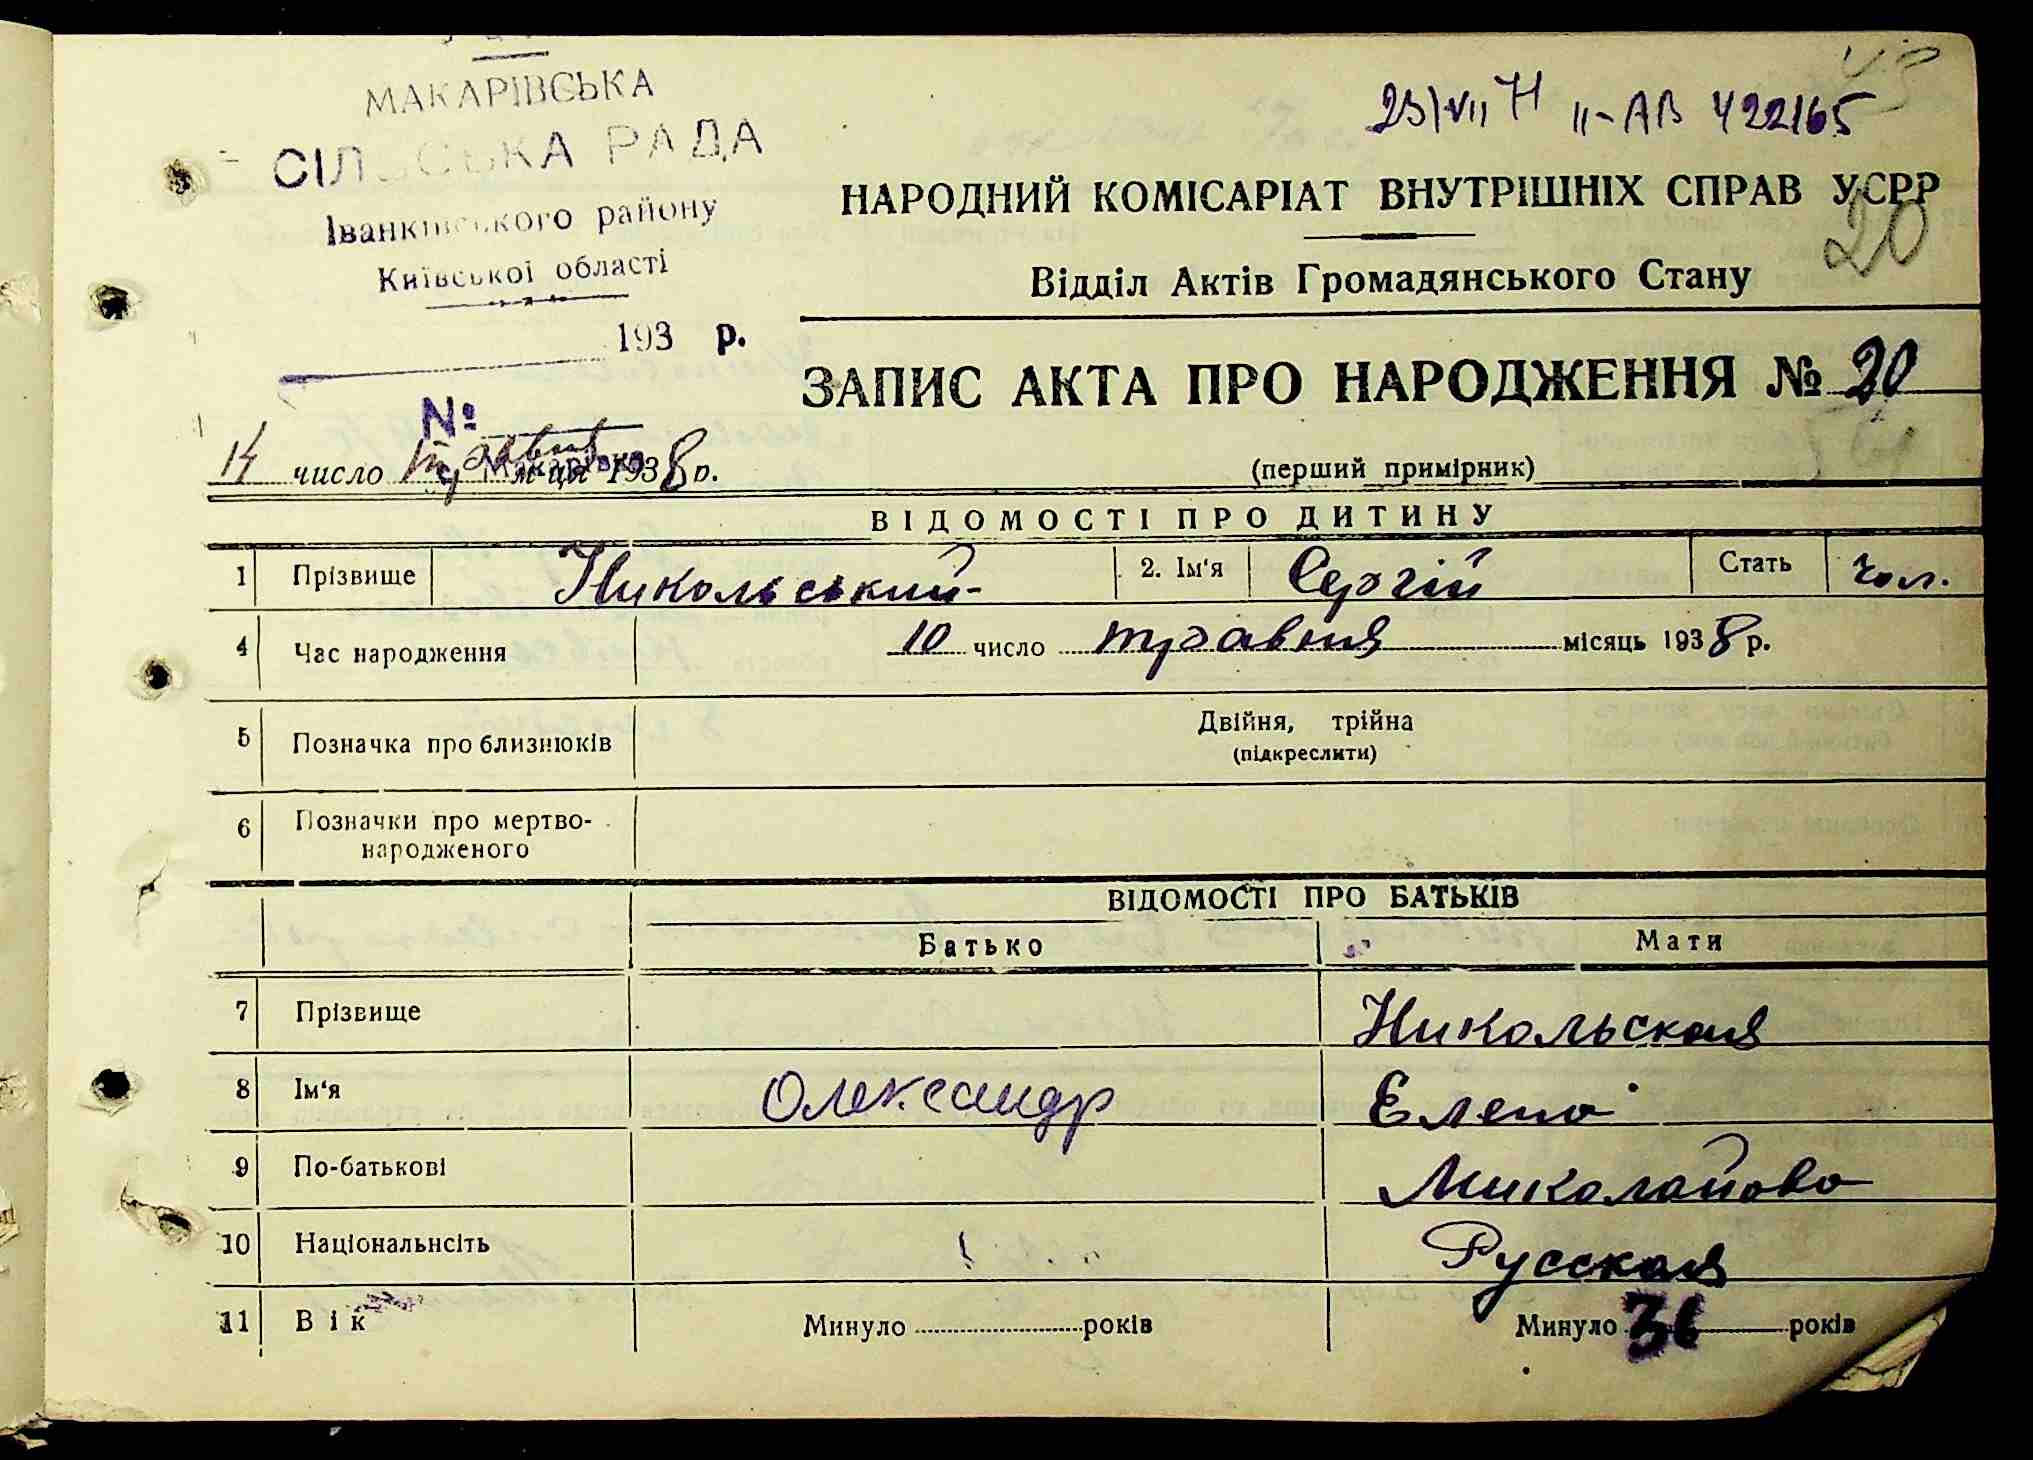 МАКАРІВСЬКА
СІЛЬСЬКА РАДА
Іванківського району
Київської області
193 р.
№
с. Макарівка
23/VII Н II-АВ 422165
НАРОДНИЙ КОМІСАРІАТ ВНУТРІШНІХ СПРАВ УСРР
20
Відділ Актів Громадянського Стану
ЗАПИС АКТА ПРО НАРОДЖЕННЯ № 20
14 число травня м-ця 1938 р.
(перший примірник)
ВІДОМОСТІ ПРО ДИТИНУ
1 Прізвище Никольський 2. Ім'я Сергій Стать чол.
4 Час народження 10 число травня місяць 1938 р.
5 Позначка про близнюків Двійня, трійна
(підкреслити)
6 Позначки про мертво-
народженого
ВІДОМОСТІ ПРО БАТЬКІВ
Батько Мати
7 Прізвище Никольская
8 Ім'я Олександр Елена
9 По-батькові Миколайова
10 Національнсіть Русская
11 Вік Минуло років Минуло 36 років